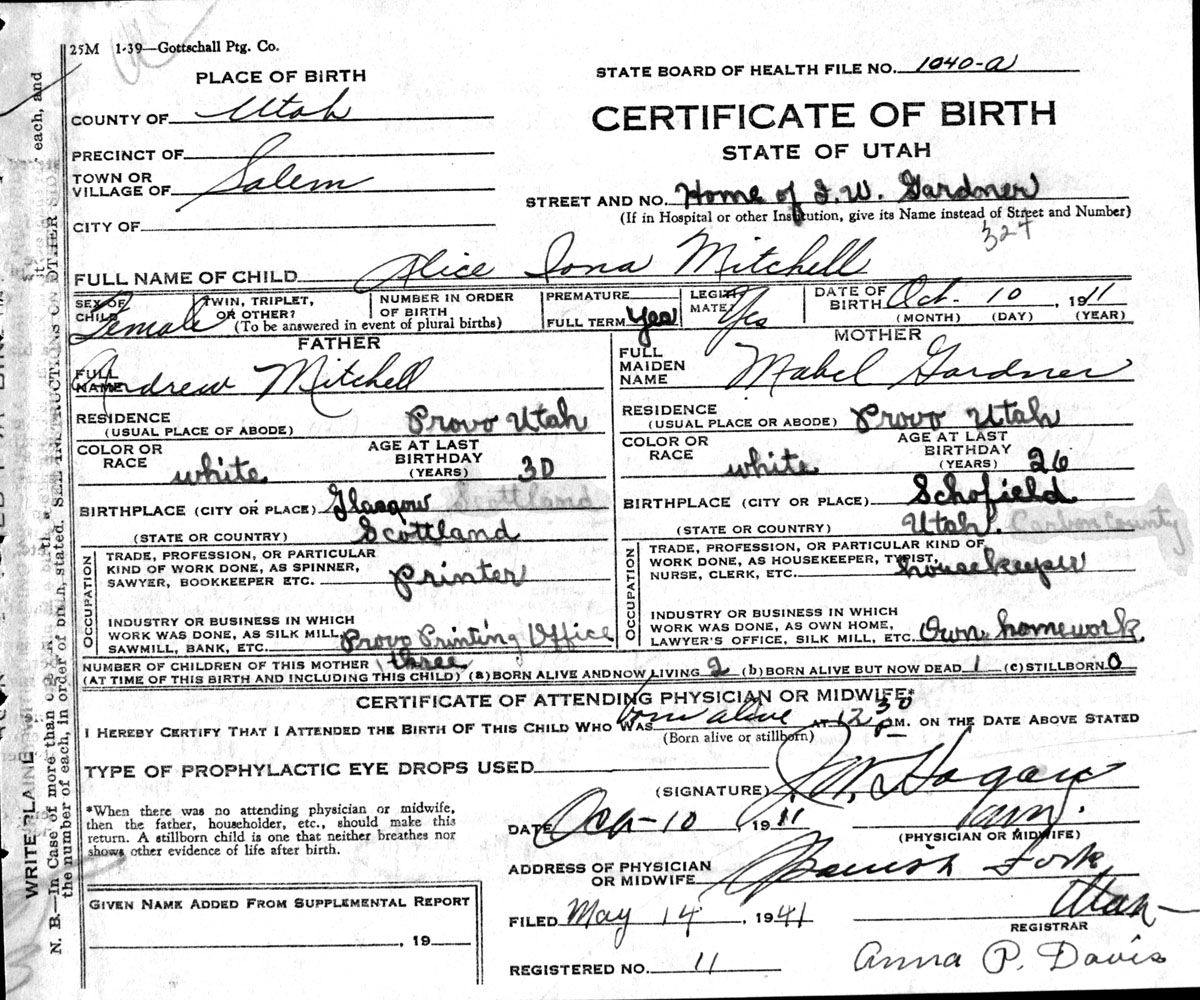 25M 1-39—Gottschall Ptg. Co.
PLACE OF BIRTH
STATE BOARD OF HEALTH FILE NO. 1040-a
COUNTY OF Utah
CERTIFICATE OF BIRTH
PRECINCT OF
STATE OF UTAH
TOWN OR
VILLAGE OF Salem
STREET AND NO. Home of I. W. Gardner
(If in Hospital or other Institution, give its Name instead of Street and Number)
CITY OF
327
FULL NAME OF CHILD Alice Iona Mitchell
SEX OF CHILD Female
TWIN, TRIPLET, OR OTHER?
NUMBER IN ORDER OF BIRTH
(To be answered in event of plural births)
PREMATURE
FULL TERM Yes
LEGITIMATE? Yes
DATE OF BIRTH Oct. 10, 1911
(MONTH) (DAY) (YEAR)
FATHER
FULL NAME Andrew Mitchell
RESIDENCE
(USUAL PLACE OF ABODE) Provo Utah
COLOR OR RACE white
AGE AT LAST BIRTHDAY (YEARS) 30
BIRTHPLACE (CITY OR PLACE) Glasgow Scottland
(STATE OR COUNTRY) Scottland
OCCUPATION
TRADE, PROFESSION, OR PARTICULAR
KIND OF WORK DONE, AS SPINNER,
SAWYER, BOOKKEEPER ETC. Printer
INDUSTRY OR BUSINESS IN WHICH
WORK WAS DONE, AS SILK MILL,
SAWMILL, BANK, ETC. Provo Printing Office
MOTHER
FULL MAIDEN NAME Mabel Gardner
RESIDENCE
(USUAL PLACE OR ABODE) Provo Utah
COLOR OR RACE white
AGE AT LAST BIRTHDAY (YEARS) 26
BIRTHPLACE (CITY OR PLACE) Schofield
(STATE OR COUNTRY) Utah. Carbon County
OCCUPATION
TRADE, PROFESSION, OR PARTICULAR KIND OF
WORK DONE, AS HOUSEKEEPER, TYPIST,
NURSE, CLERK, ETC. housekeeper
INDUSTRY OR BUSINESS IN WHICH
WORK WAS DONE, AS OWN HOME,
LAWYER'S OFFICE, SILK MILL, ETC. Own homework.
NUMBER OF CHILDREN OF THIS MOTHER three
(AT TIME OF THIS BIRTH AND INCLUDING THIS CHILD) (a) BORN ALIVE AND NOW LIVING 2 (b) BORN ALIVE BUT NOW DEAD 1 (c) STILLBORN 0
CERTIFICATE OF ATTENDING PHYSICIAN OR MIDWIFE*
I HEREBY CERTIFY THAT I ATTENDED THE BIRTH OF THIS CHILD WHO WAS born alive AT 12 30 P M. ON THE DATE ABOVE STATED
(Born alive or stillborn)
TYPE OF PROPHYLACTIC EYE DROPS USED
(SIGNATURE) J. W. Hagan
*When there was no attending physician or midwife,
then the father, householder, etc., should make this
return. A stillborn child is one that neither breathes nor
shows other evidence of life after birth.
DATE Oct-10, 1911
(PHYSICIAN OR MIDWIFE)
ADDRESS OF PHYSICIAN
OR MIDWIFE Spanish Fork
Utah
GIVEN NAME ADDED FROM SUPPLEMENTAL REPORT
, 19
FILED May 14, 1941
REGISTRAR
REGISTERED NO. 11
Anna P. Davis
N. B.—In Case of more than
each, and
the number of each, in order of birth, stated. SEE INSTRUCTIONS ON OTHER SIDE
WRITE PLAINLY